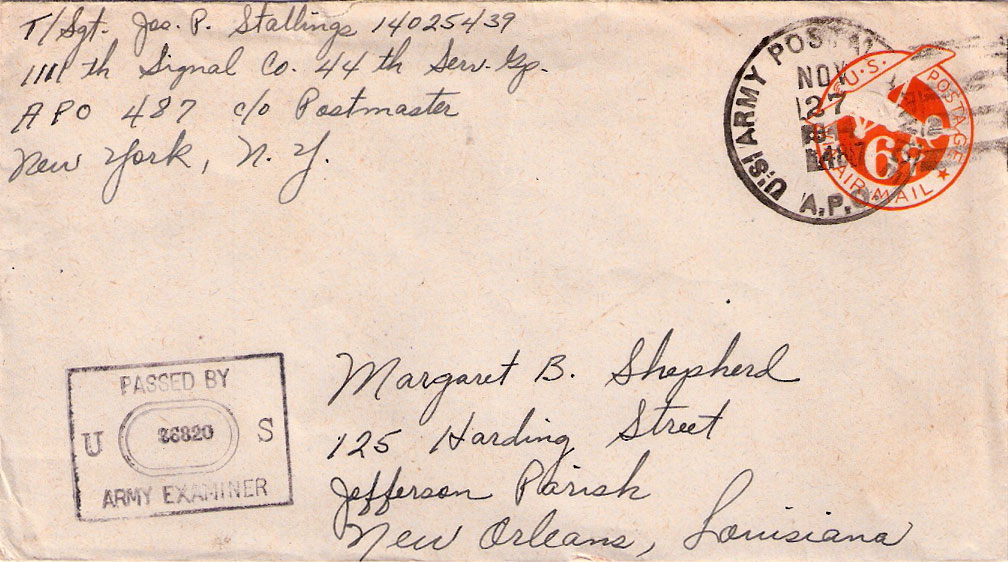 T/Sgt. Jas. P. Stallings 14025439
1111th Signal Co. 44th Serv. Gp.
APO 487 c/o Postmaster
New York, N. Y.
U.S. ARMY POSTAL
NOV
27
A.P.O.
U.S. POSTAGE
6
AIR MAIL
PASSED BY
U 36820 S
ARMY EXAMINER
Margaret B. Shepherd
125 Harding Street
Jefferson Parish
New Orleans, Louisiana